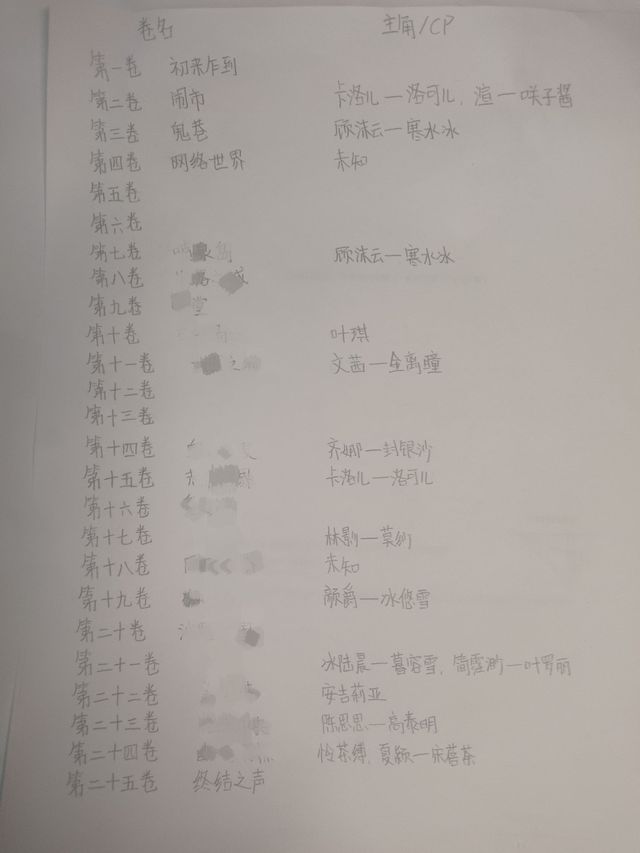 卷名 主角/CP
第一卷 初来乍到
第二卷 闹市 卡洛儿—洛可儿，渲—咲子酱
第三卷 鬼巷 顾沫云—寒水冰
第四卷 网络世界 未知
第五卷
第六卷
第七卷 顾沫云—寒水冰
第八卷
第九卷 堂
第十卷 叶琪
第十一卷 之 文茜—金离瞳
第十二卷
第十三卷
第十四卷 齐娜—封银沙
第十五卷 卡洛儿—洛可儿
第十六卷
第十七卷 林影—莫纱
第十八卷 未知
第十九卷 颜爵—冰悠雪
第二十卷
第二十一卷 冰陆晨—暮容雪，简雪—叶罗丽
第二十二卷 安吉莉亚
第二十三卷 陈思思—高泰明
第二十四卷 怜茶缚，夏颖—宋蓓茶
第二十五卷 终结之声